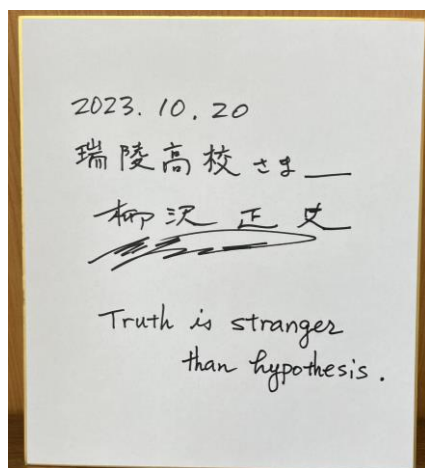 2023.10.20
瑞陵高校さま
柳沢正史
Truth is stranger
than hypothesis.